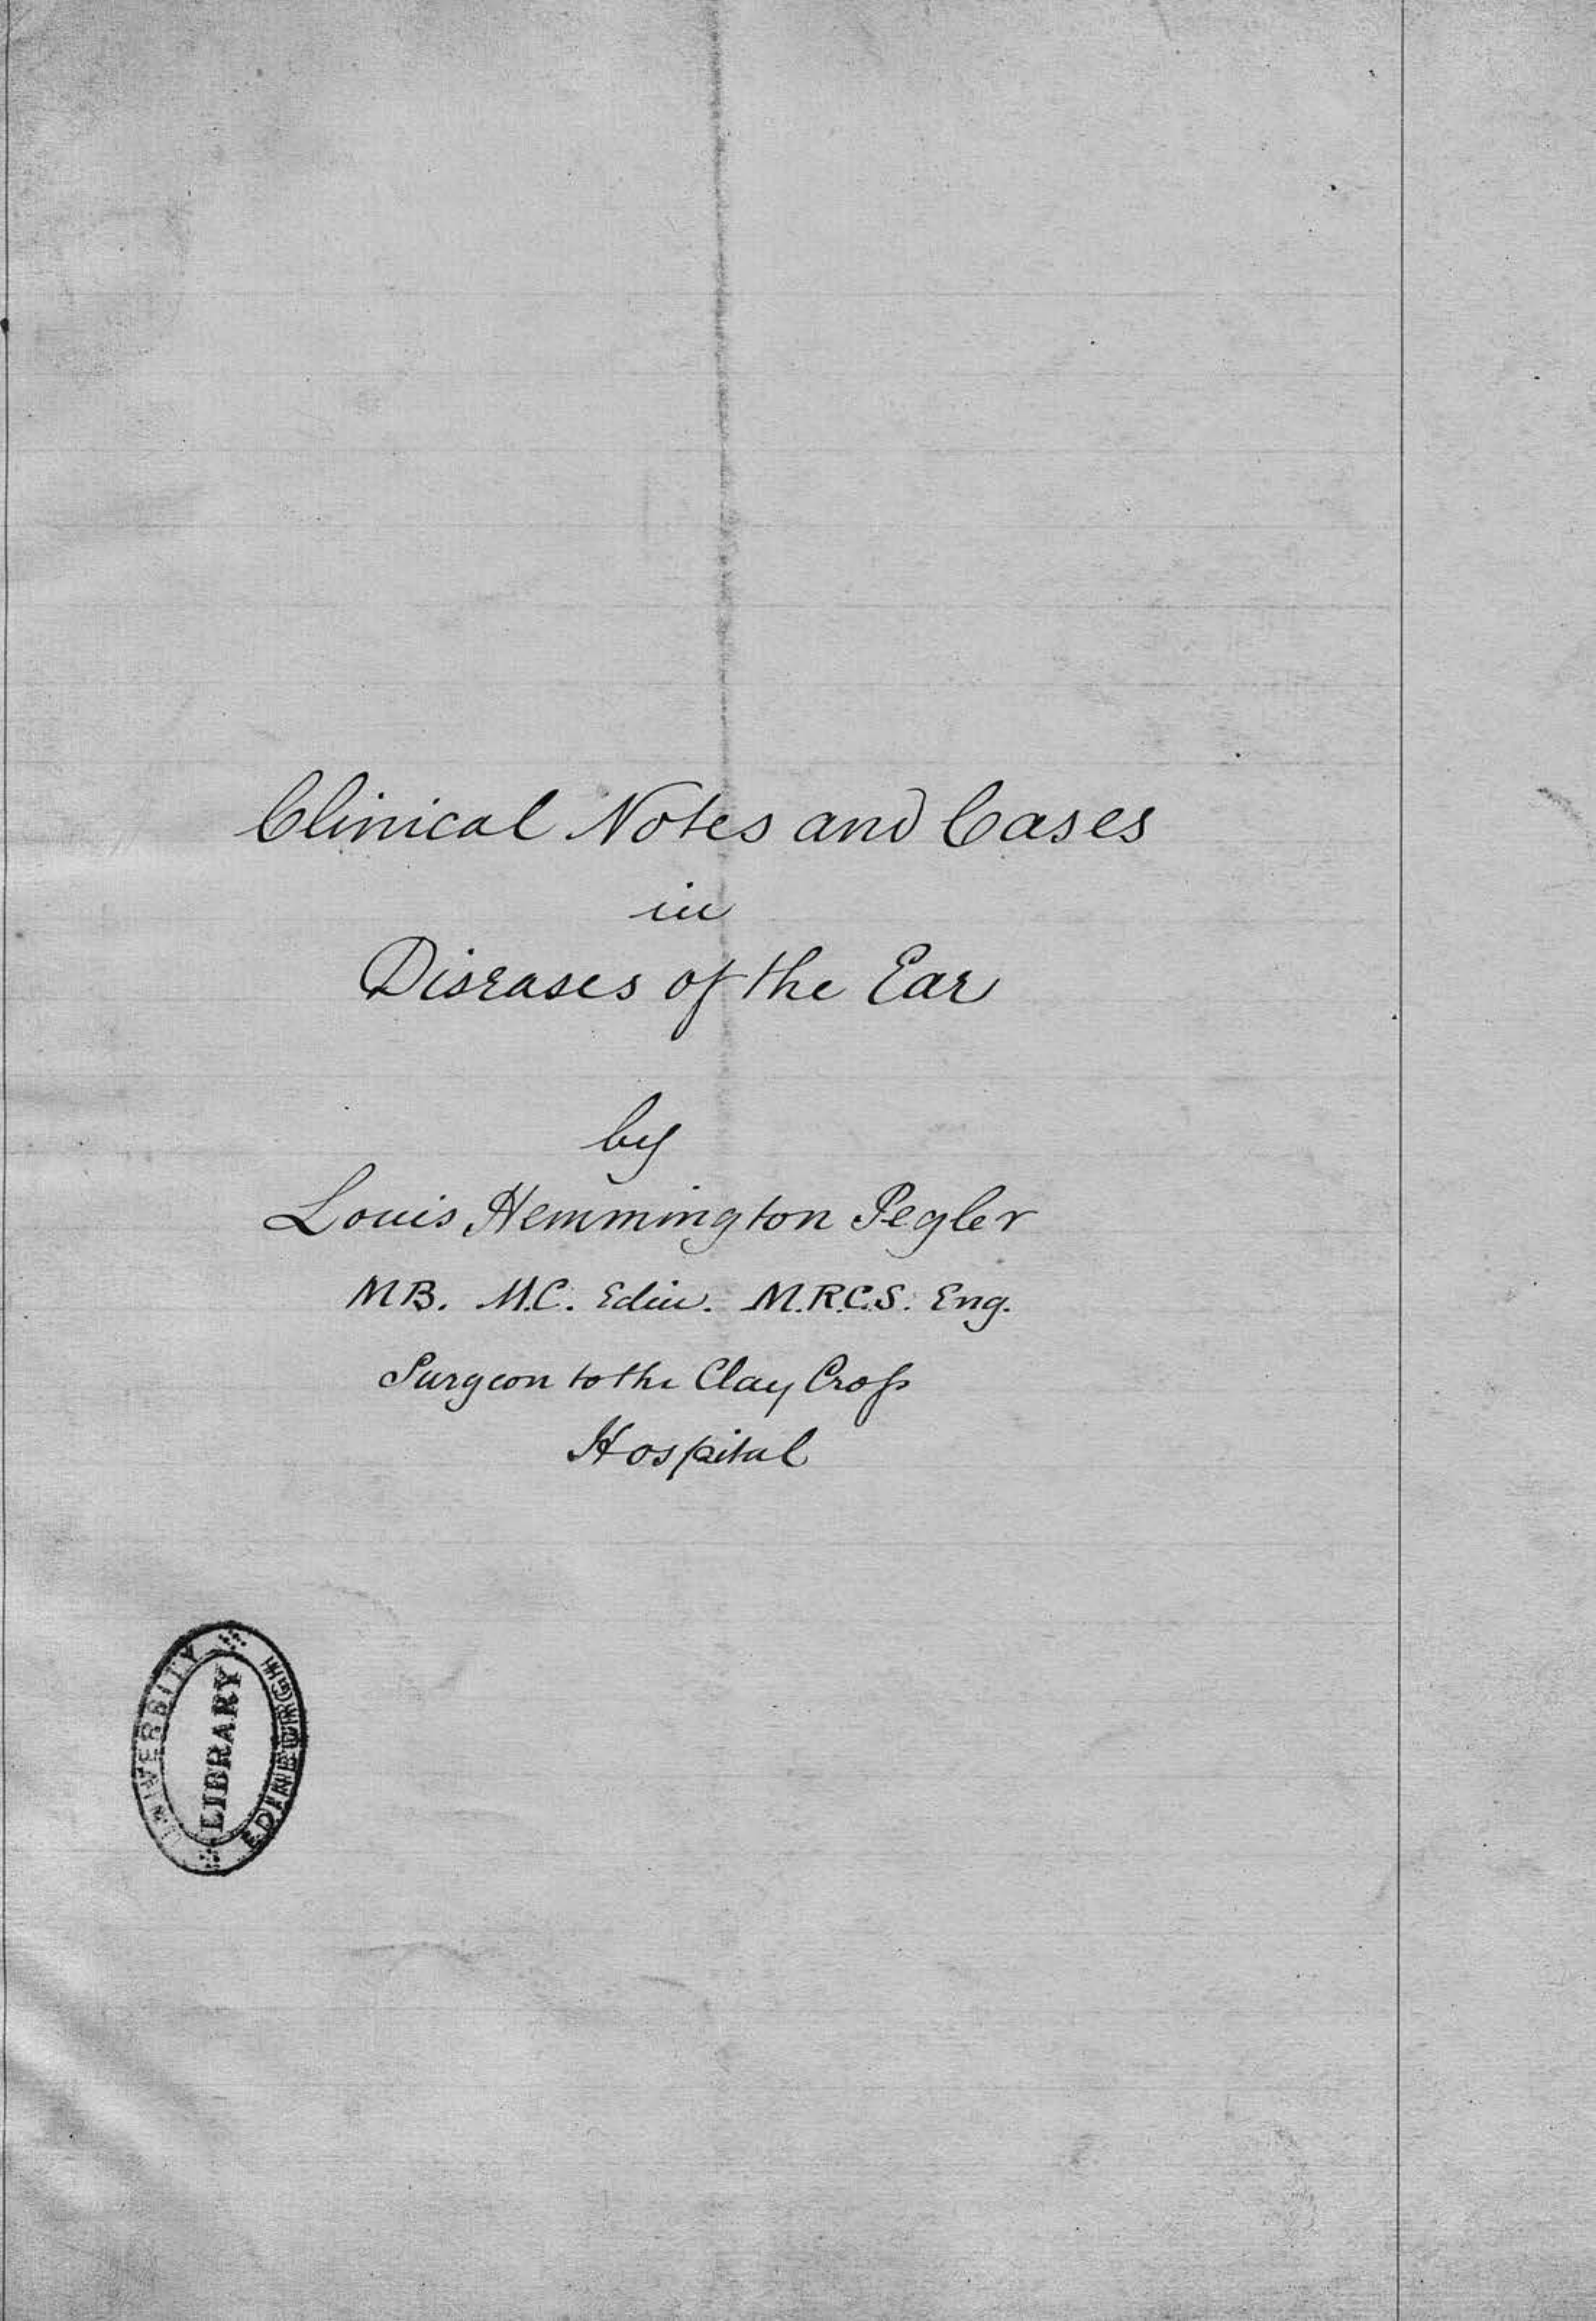 Clinical Notes and Cases
in
Diseases of the Ear
by
Louis Hemmington Pegler
MB. M.C. Edin. M.R.C.S. Eng.
Surgeon to the Clay Croſs
Hospital
UNIVERSITY
LIBRARY
EDINBURGH